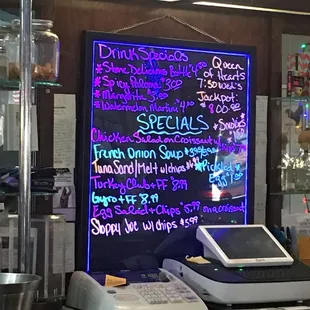 Drink Specials
* Stone Delicious Bottle 4.00
* Spicy Paloma 8.00
* Margarita
* Watermelon Martini
Queen of Hearts
7:30 Wed's
Jackpot:
SPECIALS
Chicken Salad on Croissant w/
French Onion Soup
Tuna Sand/Melt w/ chips
Turkey Club + FF 8.99
Gyro + FF 8.99
Egg Salad + Chips on a croissant
Sloppy Joe w/ chips $5.99
* Pickled
Egg